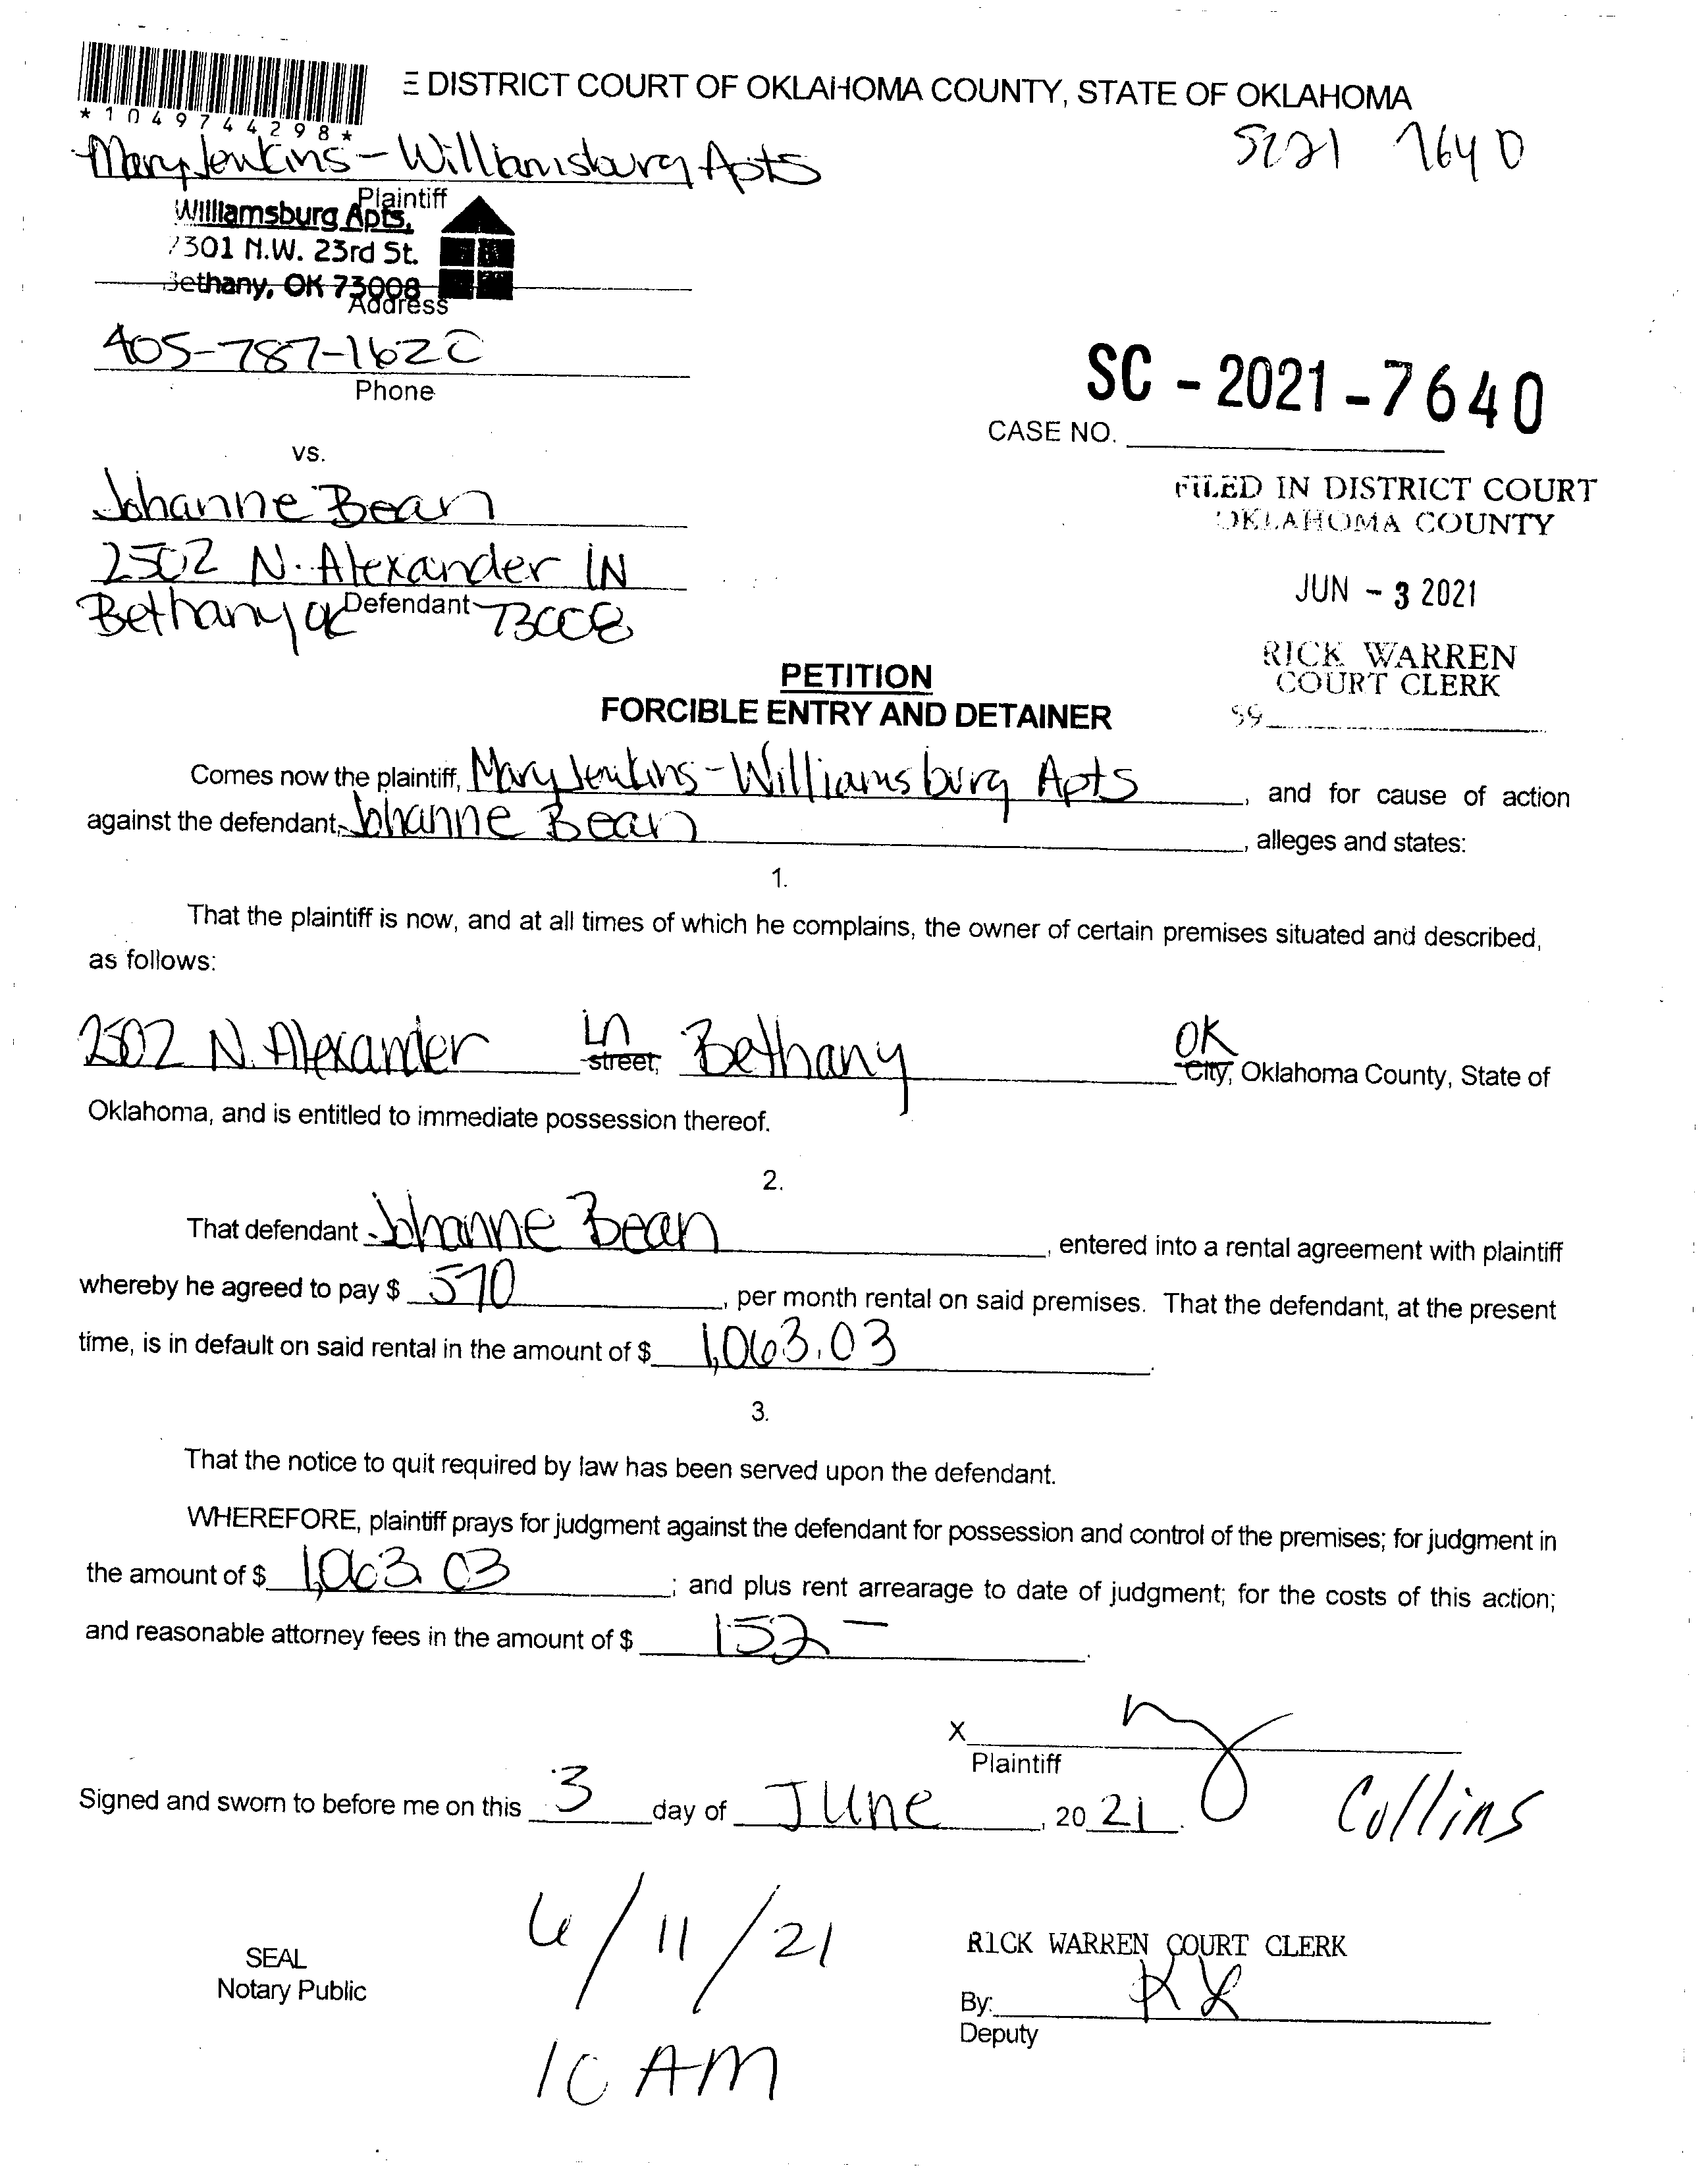 E DISTRICT COURT OF OKLAHOMA COUNTY, STATE OF OKLAHOMA
*1049744298*
SC21 7640
Mary Jenkins - Williamsburg Apts
Plaintiff
Williamsburg Apts,
7301 N.W. 23rd St.
Bethany, OK 73008
Address
405-787-1620
Phone
SC - 2021 - 7640
CASE NO.
vs.
Johanne Bean
2502 N. Alexander LN
Bethany OK 73008
Defendant
FILED IN DISTRICT COURT
OKLAHOMA COUNTY
JUN - 3 2021
RICK WARREN
COURT CLERK
59
PETITION
FORCIBLE ENTRY AND DETAINER
Comes now the plaintiff, Mary Jenkins - Williamsburg Apts, and for cause of action
against the defendant, Johanne Bean, alleges and states:
1.
That the plaintiff is now, and at all times of which he complains, the owner of certain premises situated and described,
as follows:
2502 N. Alexander Ln street, Bethany OK City, Oklahoma County, State of
Oklahoma, and is entitled to immediate possession thereof.
2.
That defendant Johanne Bean, entered into a rental agreement with plaintiff
whereby he agreed to pay $ 570, per month rental on said premises. That the defendant, at the present
time, is in default on said rental in the amount of $ 1,063.03.
3.
That the notice to quit required by law has been served upon the defendant.
WHEREFORE, plaintiff prays for judgment against the defendant for possession and control of the premises; for judgment in
the amount of $ 1,063.03; and plus rent arrearage to date of judgment; for the costs of this action;
and reasonable attorney fees in the amount of $ 152 -.
X
Plaintiff
Signed and sworn to before me on this 3 day of June, 20 21.
Collins
6/11/21
10 AM
SEAL
Notary Public
RICK WARREN COURT CLERK
By:
Deputy